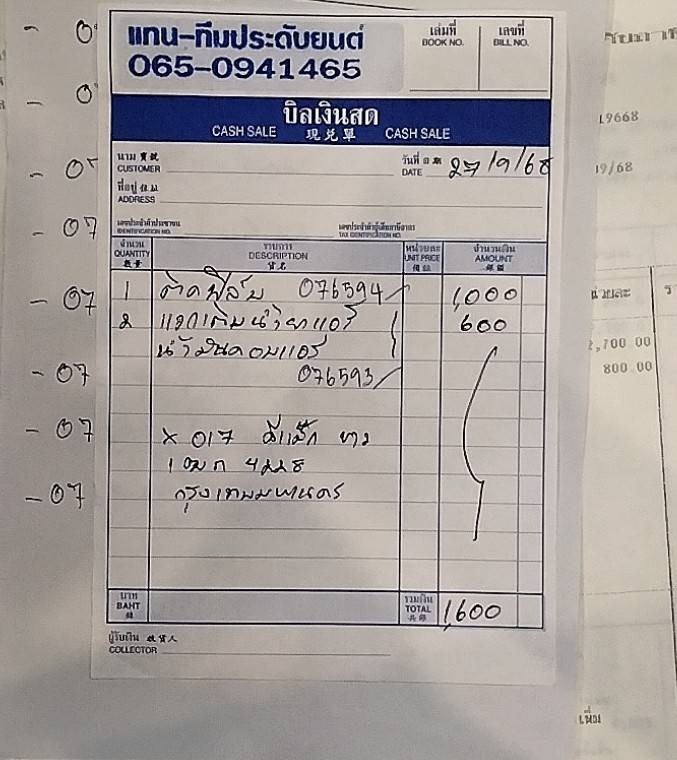 แทน-ทีมประดับยนต์
065-0941465
เล่มที่ เลขที่
BOOK NO. BILL NO.
บิลเงินสด
CASH SALE 現兌單 CASH SALE
นาม 寳號 วันที่
CUSTOMER DATE 27/9/68
ที่อยู่ 住址
ADDRESS
เลขประจำตัวประชาชน เลขประจำตัวผู้เสียภาษีอากร
IDENTIFICATION NO. TAX IDENTIFICATION NO.
จำนวน รายการ หน่วยละ จำนวนเงิน
QUANTITY DESCRIPTION UNIT PRICE AMOUNT
數量 貨名 價錢 銀額
1 ติดฟิล์ม 076594 1,000
2 แวกเติมน้ำยาแอร์ 600
น้ำมันคอมแอร์
076593
x 017 ดีแม็ก ขาว
1ฒก 4228
กรุงเทพมหานคร
บาท รวมเงิน
BAHT TOTAL 1,600
ผู้รับเงิน 收貨人
COLLECTOR
- 07
- 07
- 07
- 07
- 07
19668
19/68
่วยละ
2,700 00
800 00